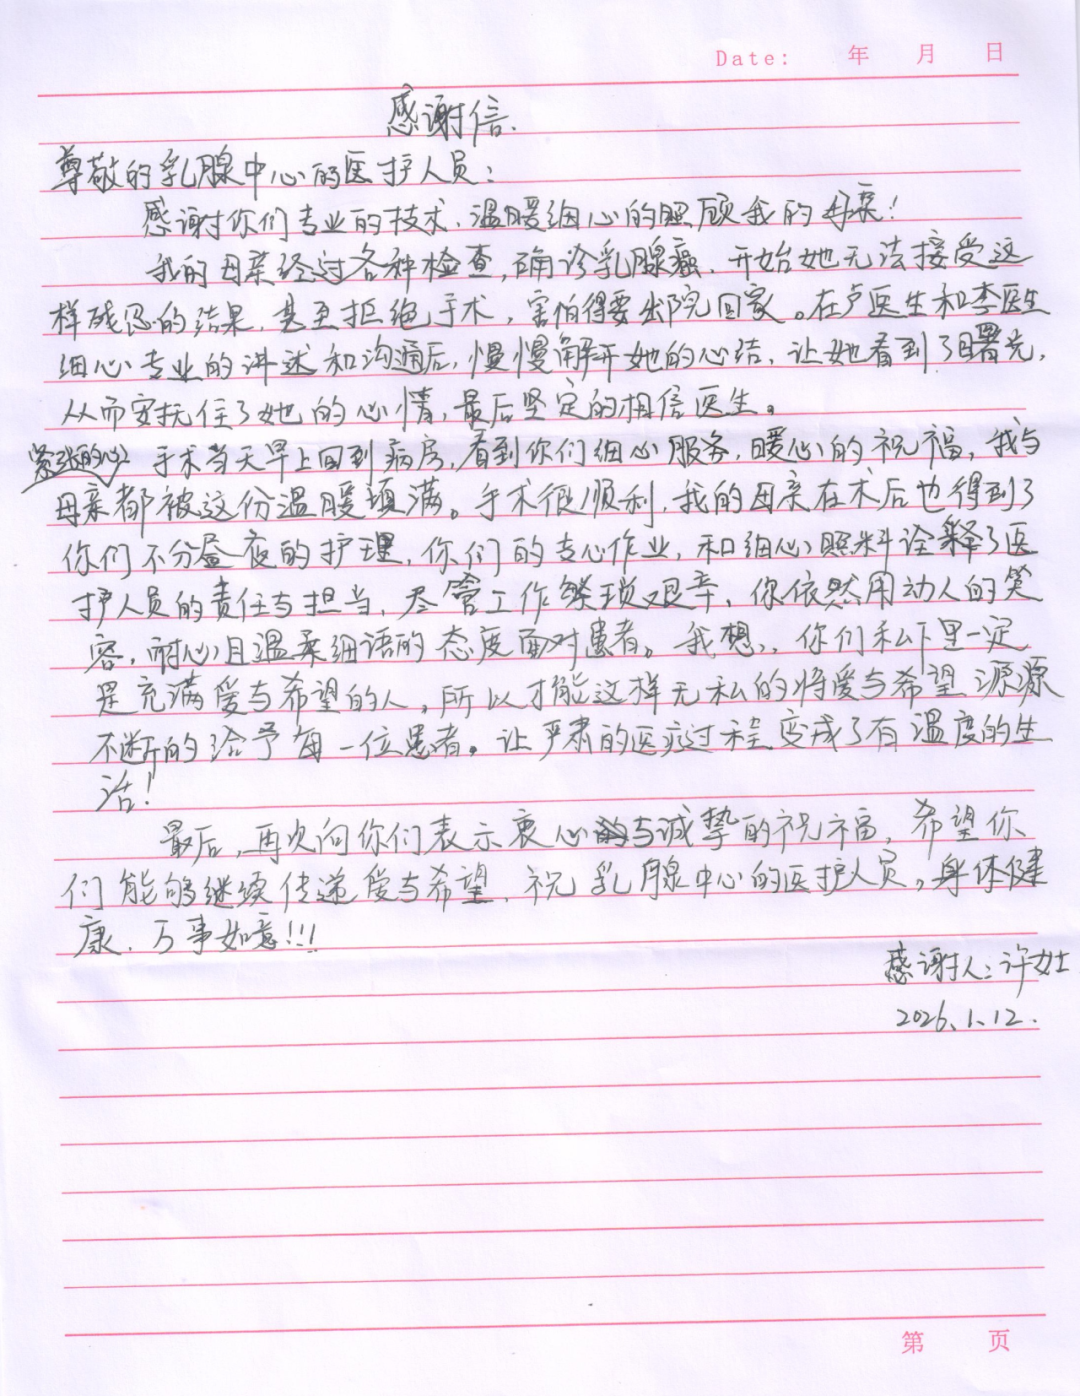 Date: 年 月 日
感谢信.
尊敬的乳腺中心的医护人员：
感谢你们专业的技术、温暖细心的照顾我的母亲！
我的母亲经过各种检查，确诊乳腺癌、开始她无法接受这
样残忍的结果，甚至拒绝手术，害怕得要出院回家。在卢医生和李医生
细心专业的讲述和沟通后，慢慢解开她的心结、让她看到了曙光，
从而安抚住了她的心情，最后坚定的相信医生。
紧张的心 手术当天早上回到病房，看到你们细心服务，暖心的祝福，我与
母亲都被这份温暖填满。手术很顺利，我的母亲在术后也得到了
你们不分昼夜的护理，你们的专心作业，和细心照料诠释了医
护人员的责任与担当，尽管工作繁琐艰辛、你依然用动人的笑
容，耐心且温柔细语的态度面对患者。我想，你们私下里一定
是充满爱与希望的人，所以才能这样无私的将爱与希望源源
不断的给予每一位患者。让严肃的医疗过程变成了有温度的生
活！
最后，再次向你们表示衷心与诚挚的祝福，希望你
们能够继续传递爱与希望、祝乳腺中心的医护人员，身体健
康、万事如意！！！
感谢人：许女士
2026.1.12.
第 页